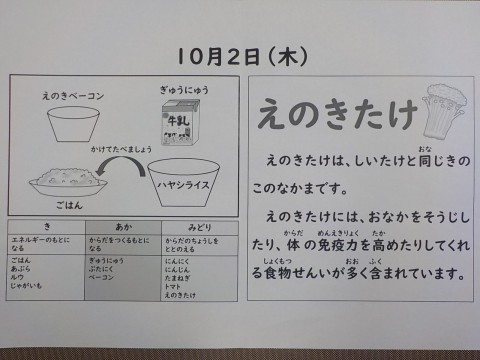 10月2日(木)
えのきベーコン
ぎゅうにゅう
牛乳
かけてたべましょう
ごはん
ハヤシライス
き
あか
みどり
エネルギーのもとに
なる
からだをつくるもとに
なる
からだのちょうしを
ととのえる
ごはん
あぶら
ルウ
じゃがいも
ぎゅうにゅう
ぶたにく
ベーコン
にんにく
にんじん
たまねぎ
トマト
えのきたけ
えのきたけ
おな
えのきたけは、しいたけと同じきの
このなかまです。
えのきたけには、おなかをそうじし
からだ めんえきりょく たか
たり、体の免疫力を高めたりしてくれ
しょくもつ おお ふく
る食物せんいが多く含まれています。